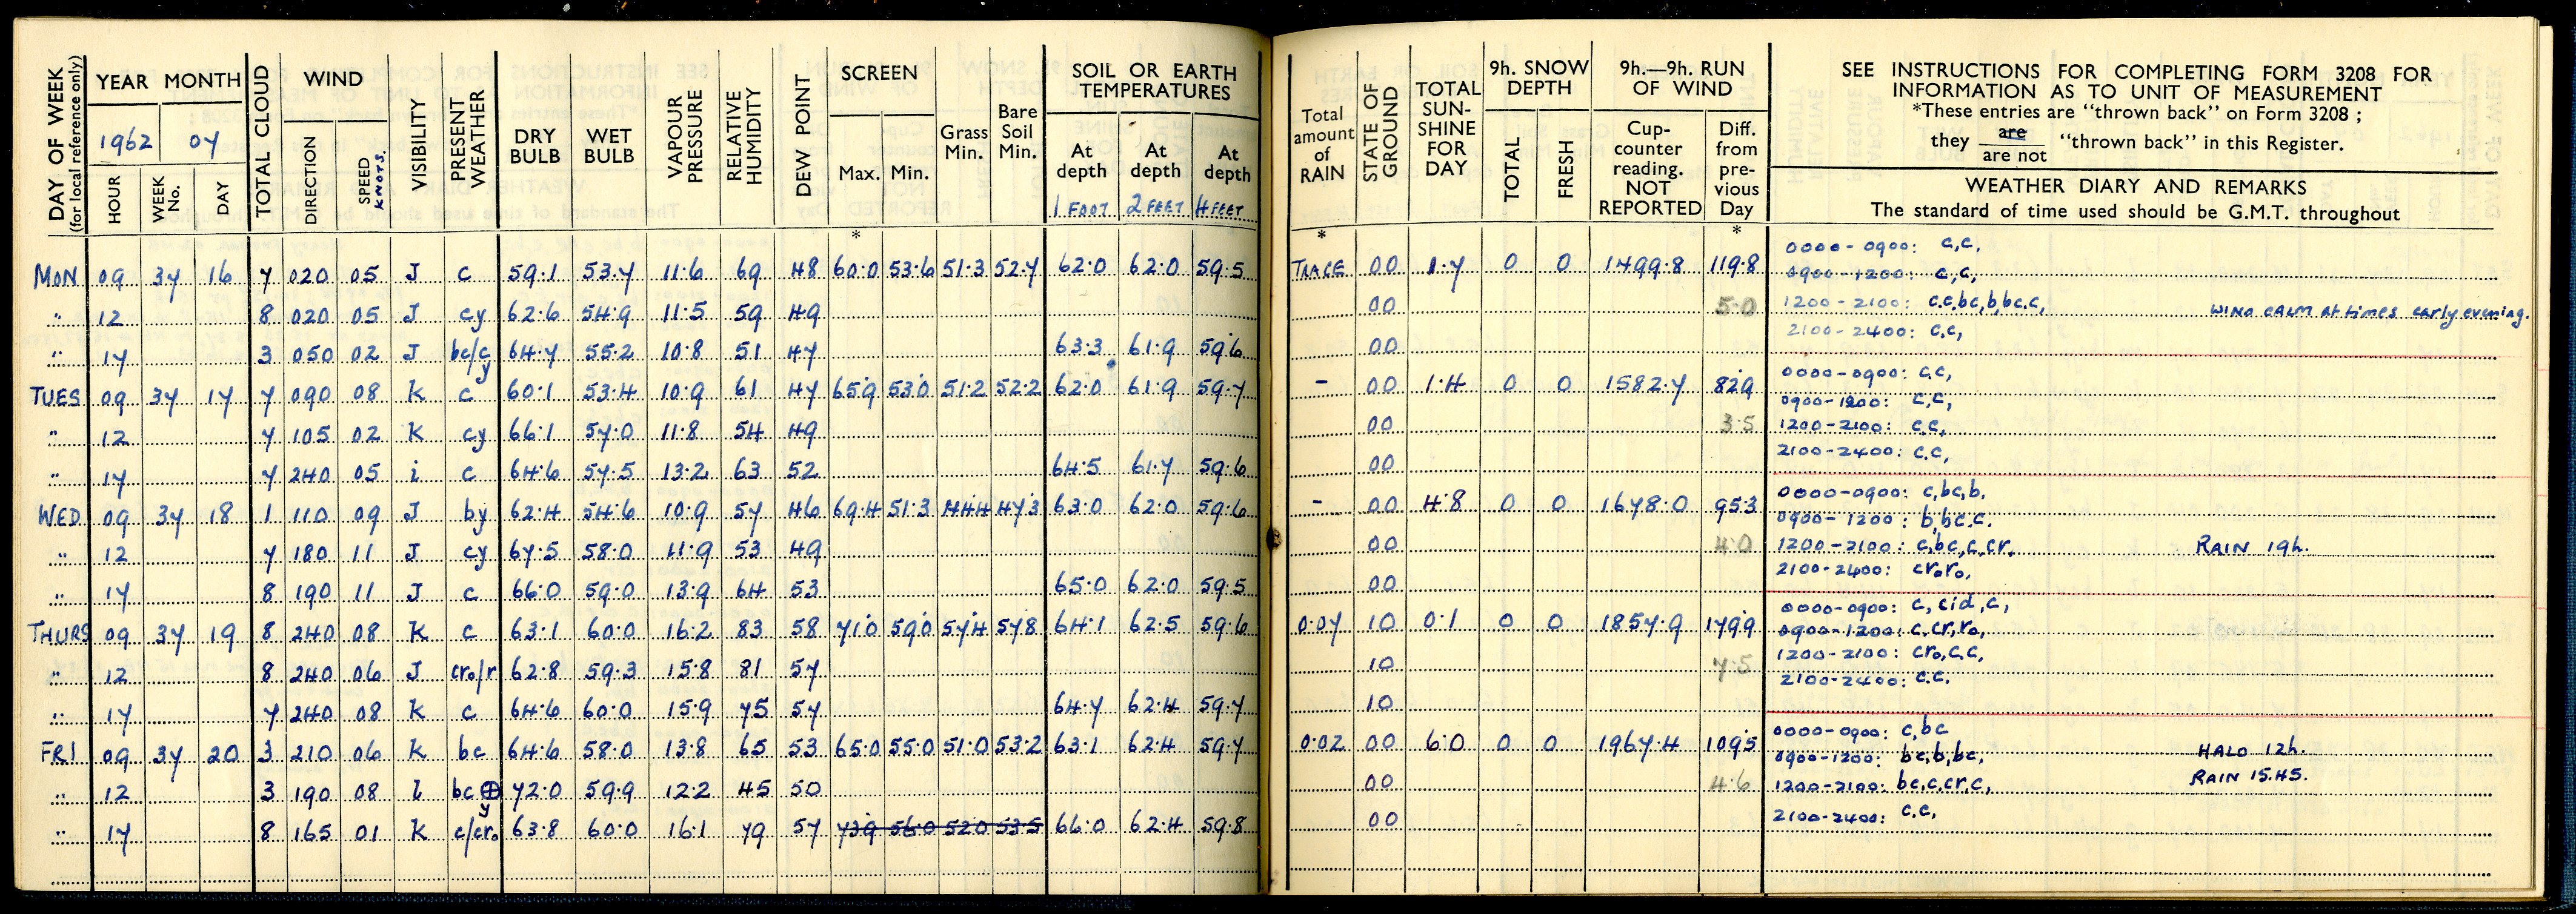 DAY OF WEEK (for local reference only) YEAR MONTH TOTAL CLOUD WIND VISIBILITY PRESENT WEATHER DRY BULB WET BULB VAPOUR PRESSURE RELATIVE HUMIDITY DEW POINT SCREEN Grass Min. Bare Soil Min. SOIL OR EARTH TEMPERATURES
1962 07
HOUR WEEK No. DAY DIRECTION SPEED KNOTS. Max. Min. At depth At depth At depth
1 FOOT 2 FEET 4 FEET
*
MON 09 37 16 7 020 05 J c 59.1 53.7 11.6 69 48 60.0 53.6 51.3 52.7 62.0 62.0 59.5
" 12 8 020 05 J cy 62.6 54.9 11.5 59 49
" 17 3 050 02 J bc/cy 64.7 55.2 10.8 51 47 63.3 61.9 59.6
TUES 09 37 17 7 090 08 K c 60.1 53.4 10.9 61 47 65.9 53.0 51.2 52.2 62.0 61.9 59.7
" 12 7 105 02 K cy 66.1 57.0 11.8 54 49
" 17 7 240 05 i c 64.6 57.5 13.2 63 52 64.5 61.7 59.6
WED 09 37 18 1 110 09 J by 62.4 54.6 10.9 57 46 69.4 51.3 44.4 47.3 63.0 62.0 59.6
" 12 7 180 11 J cy 67.5 58.0 11.9 53 49
" 17 8 190 11 J c 66.0 59.0 13.9 64 53 65.0 62.0 59.5
THURS 09 37 19 8 240 08 K c 63.1 60.0 16.2 83 58 71.0 59.0 57.4 57.8 64.1 62.5 59.6
" 12 8 240 06 J cr₀/r 62.8 59.3 15.8 81 57
" 17 7 240 08 K c 64.6 60.0 15.9 75 57 64.7 62.4 59.7
FRI 09 37 20 3 210 06 K bc 64.6 58.0 13.8 65 53 65.0 55.0 51.0 53.2 63.1 62.4 59.7
" 12 3 190 08 l bc⊕y 72.0 59.9 12.2 45 50
" 17 8 165 01 K c/cr₀ 63.8 60.0 16.1 79 57 73.9 56.0 52.0 53.5 66.0 62.4 59.8
Total amount of RAIN STATE OF GROUND TOTAL SUN-SHINE FOR DAY 9h. SNOW DEPTH 9h.—9h. RUN OF WIND
TOTAL FRESH Cup-counter reading. NOT REPORTED Diff. from pre-vious Day
* *
TRACE 00 1.7 0 0 1499.8 119.8
00 5.0
00
- 00 1.4 0 0 1582.7 82.9
00 3.5
00
- 00 4.8 0 0 1678.0 95.3
00 4.0
00
0.07 10 0.1 0 0 1857.9 179.9
10 7.5
10
0.02 00 6.0 0 0 1967.4 109.5
00 4.6
00
SEE INSTRUCTIONS FOR COMPLETING FORM 3208 FOR
INFORMATION AS TO UNIT OF MEASUREMENT
*These entries are "thrown back" on Form 3208 ;
they are / are not "thrown back" in this Register.
WEATHER DIARY AND REMARKS
The standard of time used should be G.M.T. throughout
0000-0900: c,c,
0900-1200: c,c,
1200-2100: c,c,bc,b,bc,c, WIND CALM at times early evening.
2100-2400: c,c,
0000-0900: c,c,
0900-1200: c,c,
1200-2100: c,c,
2100-2400: c,c,
0000-0900: c,bc,b,
0900-1200: b,bc,c.
1200-2100: c,bc,c,cr, RAIN 19h.
2100-2400: cr₀r₀,
0000-0900: c, cid, c,
0900-1200: c,cr,r₀,
1200-2100: cr₀,c,c,
2100-2400: c.c.
0000-0900: c,bc
0900-1200: bc,b,bc, HALO 12h.
1200-2100: bc,c,cr,c, RAIN 15.45.
2100-2400: c.c,